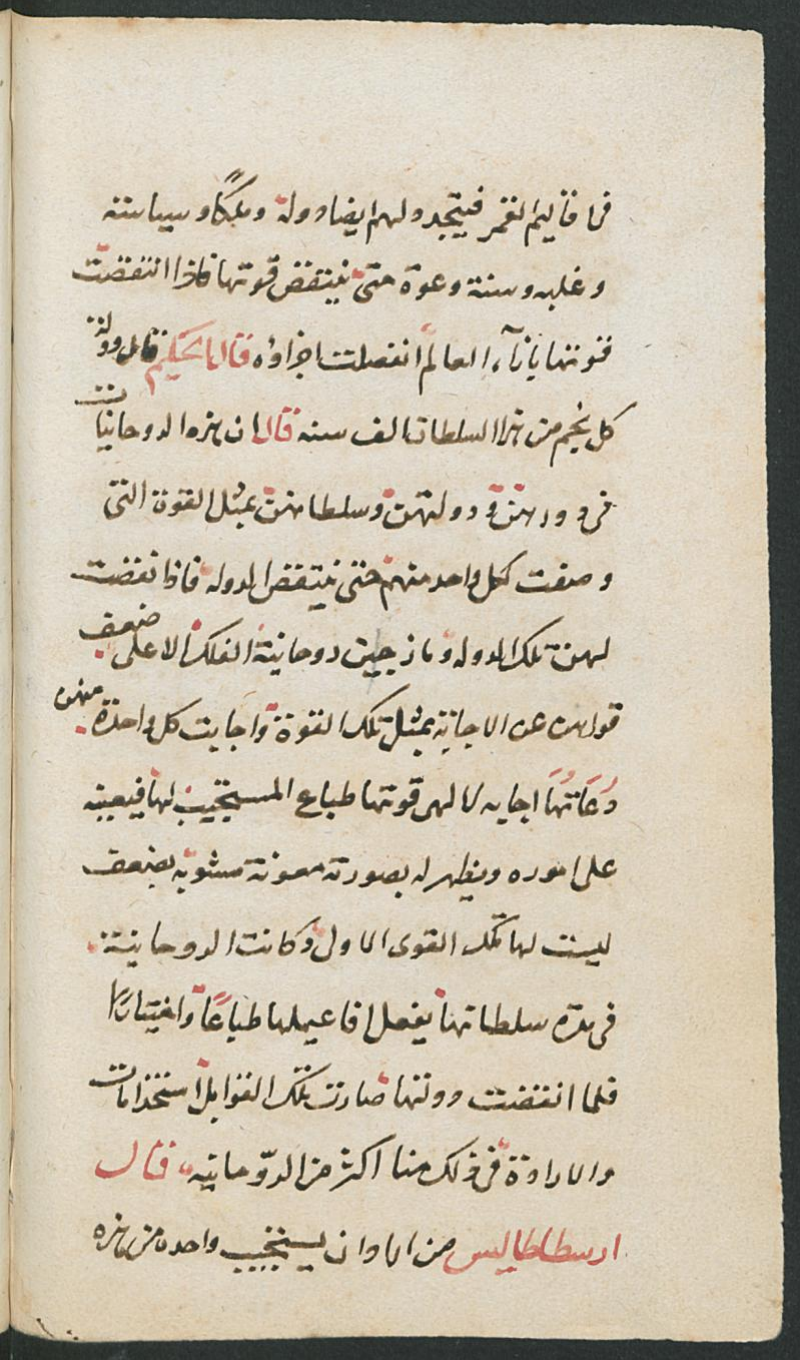 فى اقاليم القمر فيتجدد لهم ايضا دولة وملكًا وسياسة
وغلبه وسنة وعوة حتى ينتقض قوتها فاذا انتقضت
قوتها بانآء العالم انفصلت اجزاؤه قال الحكيم فان دولة
كل نجم من هذا السلطان الف سنه قال ان هذه الروحانيات
فى دورهن ودولتهن وسلطانهن بمثل القوة التى
وصفت لكل واحد منهم حتى ينتقض الدوله فاذا نقضت
لهن تلك الدوله ومازجيت روحانية الفلك الاعلى ضعف
قواهن عن الاجابة بمثل تلك القوة واجابت كل واحدة منهن
دُعَاتهَا اجابه لا لهى قوتها طباع المستجيب لها فيعينه
على اموره ويظهر له بصورة معونة مشوبة بضعف
ليست لها تلك القوى الاول وكانت الروحانية
فى مدة سلطانها يفعل افاعيلها طباعًا واختيارًا
فلما انقضت دولتها صارت تلك القوابل استخذامات
والارادة فى ذلك منا اكثر من الروّحانيه قال
ارسطاطاليس من اراد ان يستجيب واحدة من هذه